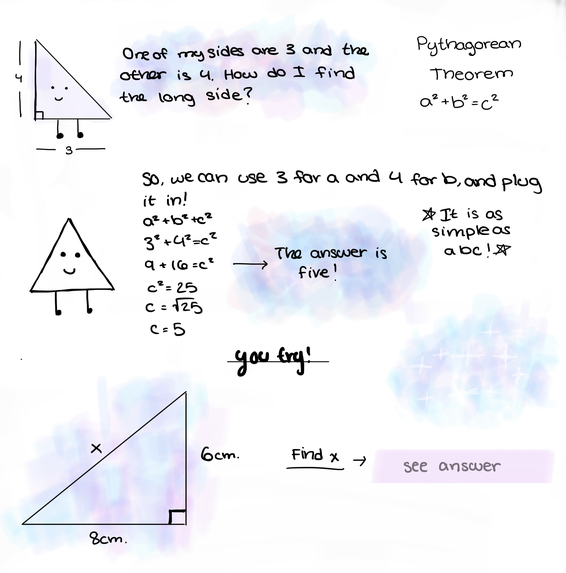 4
3
One of my sides are 3 and the
other is 4. How do I find
the long side?
Pythagorean
Theorem
a²+b²=c²
So, we can use 3 for a and 4 for b, and plug
it in!
a²+b²+c²
3²+4²=c²
9+16=c²
c²=25
c=√25
c=5
→ The answer is
five!
☆ It is as
simple as
abc! ☆
you try!
x
6cm.
8cm.
Find x →
see answer